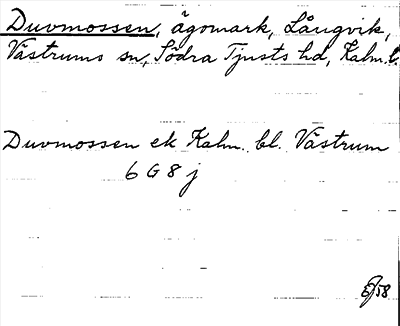 Duvmossen, ägomark, Långvik,
Västrums sn, Södra Tjusts hd, Kalm. l.
Duvmossen ek Kalm. bl. Västrum
6 G 8 j